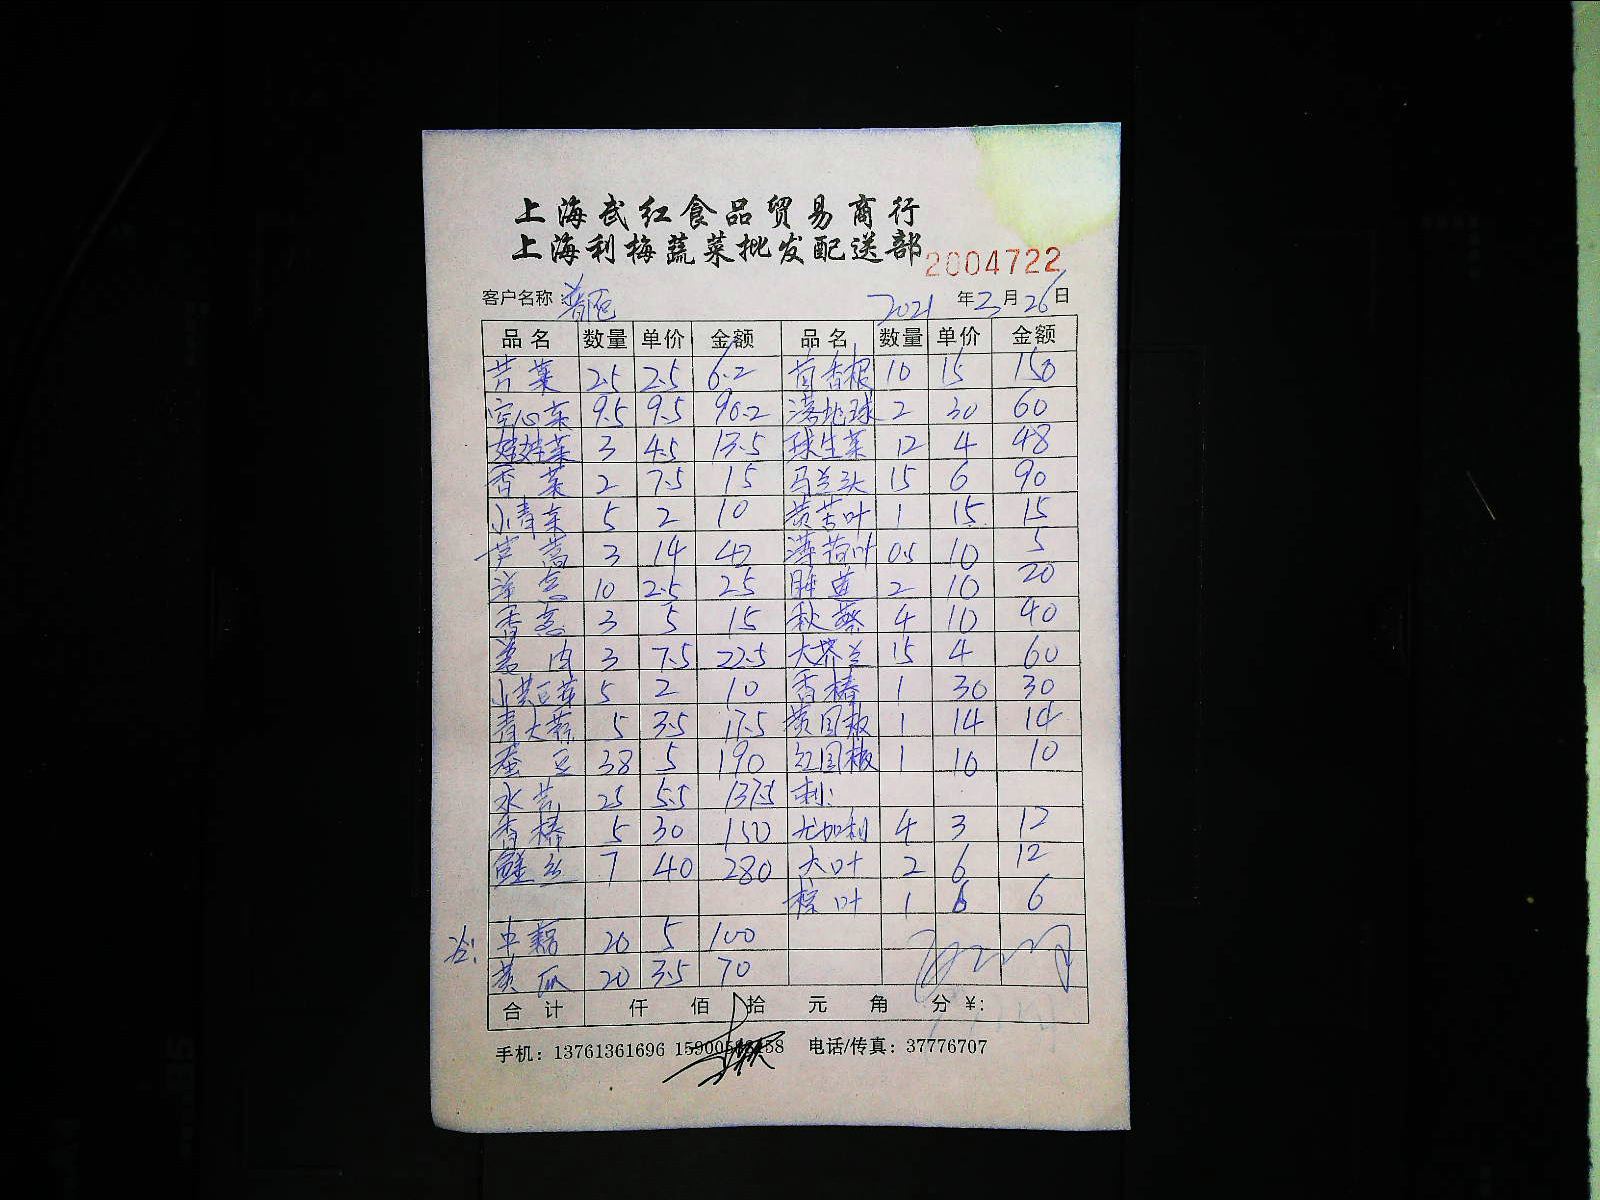 上海武红食品贸易商行
上海利梅蔬菜批发配送部 2004722
客户名称: 2021年3月26日
品名 数量 单价 金额 品名 数量 单价 金额
芹菜 2.5 2.5 6.2 茴香根 10 15 150
空心菜 9.5 9.5 90.2 2 30 60
娃娃菜 3 4.5 13.5 球生菜 12 4 48
香菜 2 7.5 15 马兰头 15 6 90
小青菜 5 2 10 黄苦叶 1 15 15
芦蒿 3 14 42 薄荷叶 0.5 10 5
洋葱 10 2.5 25 2 10 20
香葱 3 5 15 秋葵 4 10 40
姜肉 3 7.5 22.5 大芥兰 15 4 60
小黄豆芽 5 2 10 香椿 1 30 30
青大蒜 5 3.5 17.5 黄园椒 1 14 14
蚕豆 38 5 190 红园椒 1 10 10
水芹 25 5.5 137.5
香椿 5 30 150 尤加利 4 3 12
鳝丝 7 40 280 大叶 2 6 12
棕叶 1 6 6
中藕 20 5 100
黄瓜 20 3.5 70
合计 仟 佰 拾 元 角 分 ¥:
手机: 13761361696 电话/传真: 37776707